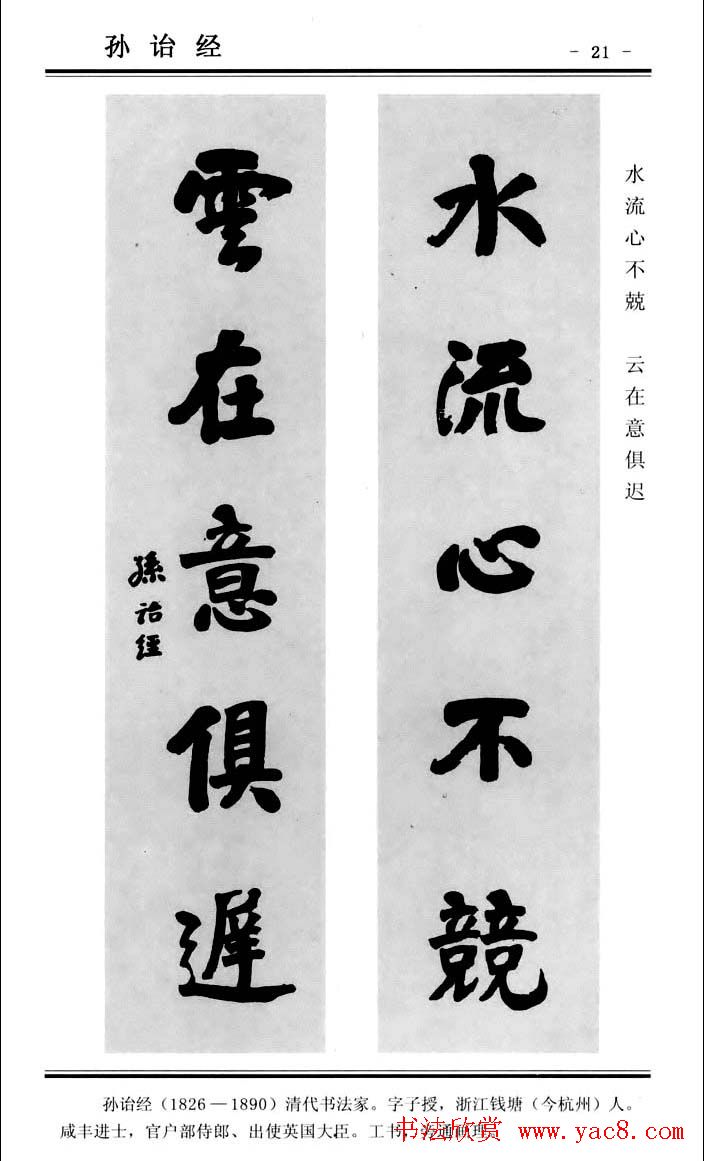 孙诒经
- 21 -
水流心不競
雲在意俱遲
孫诒經
水流心不兢 云在意俱迟
孙诒经（1826—1890）清代书法家。字子授，浙江钱塘（今杭州）人。
咸丰进士，官户部侍郎、出使英国大臣。工书，旁通
书法欣赏 www.yac8.com